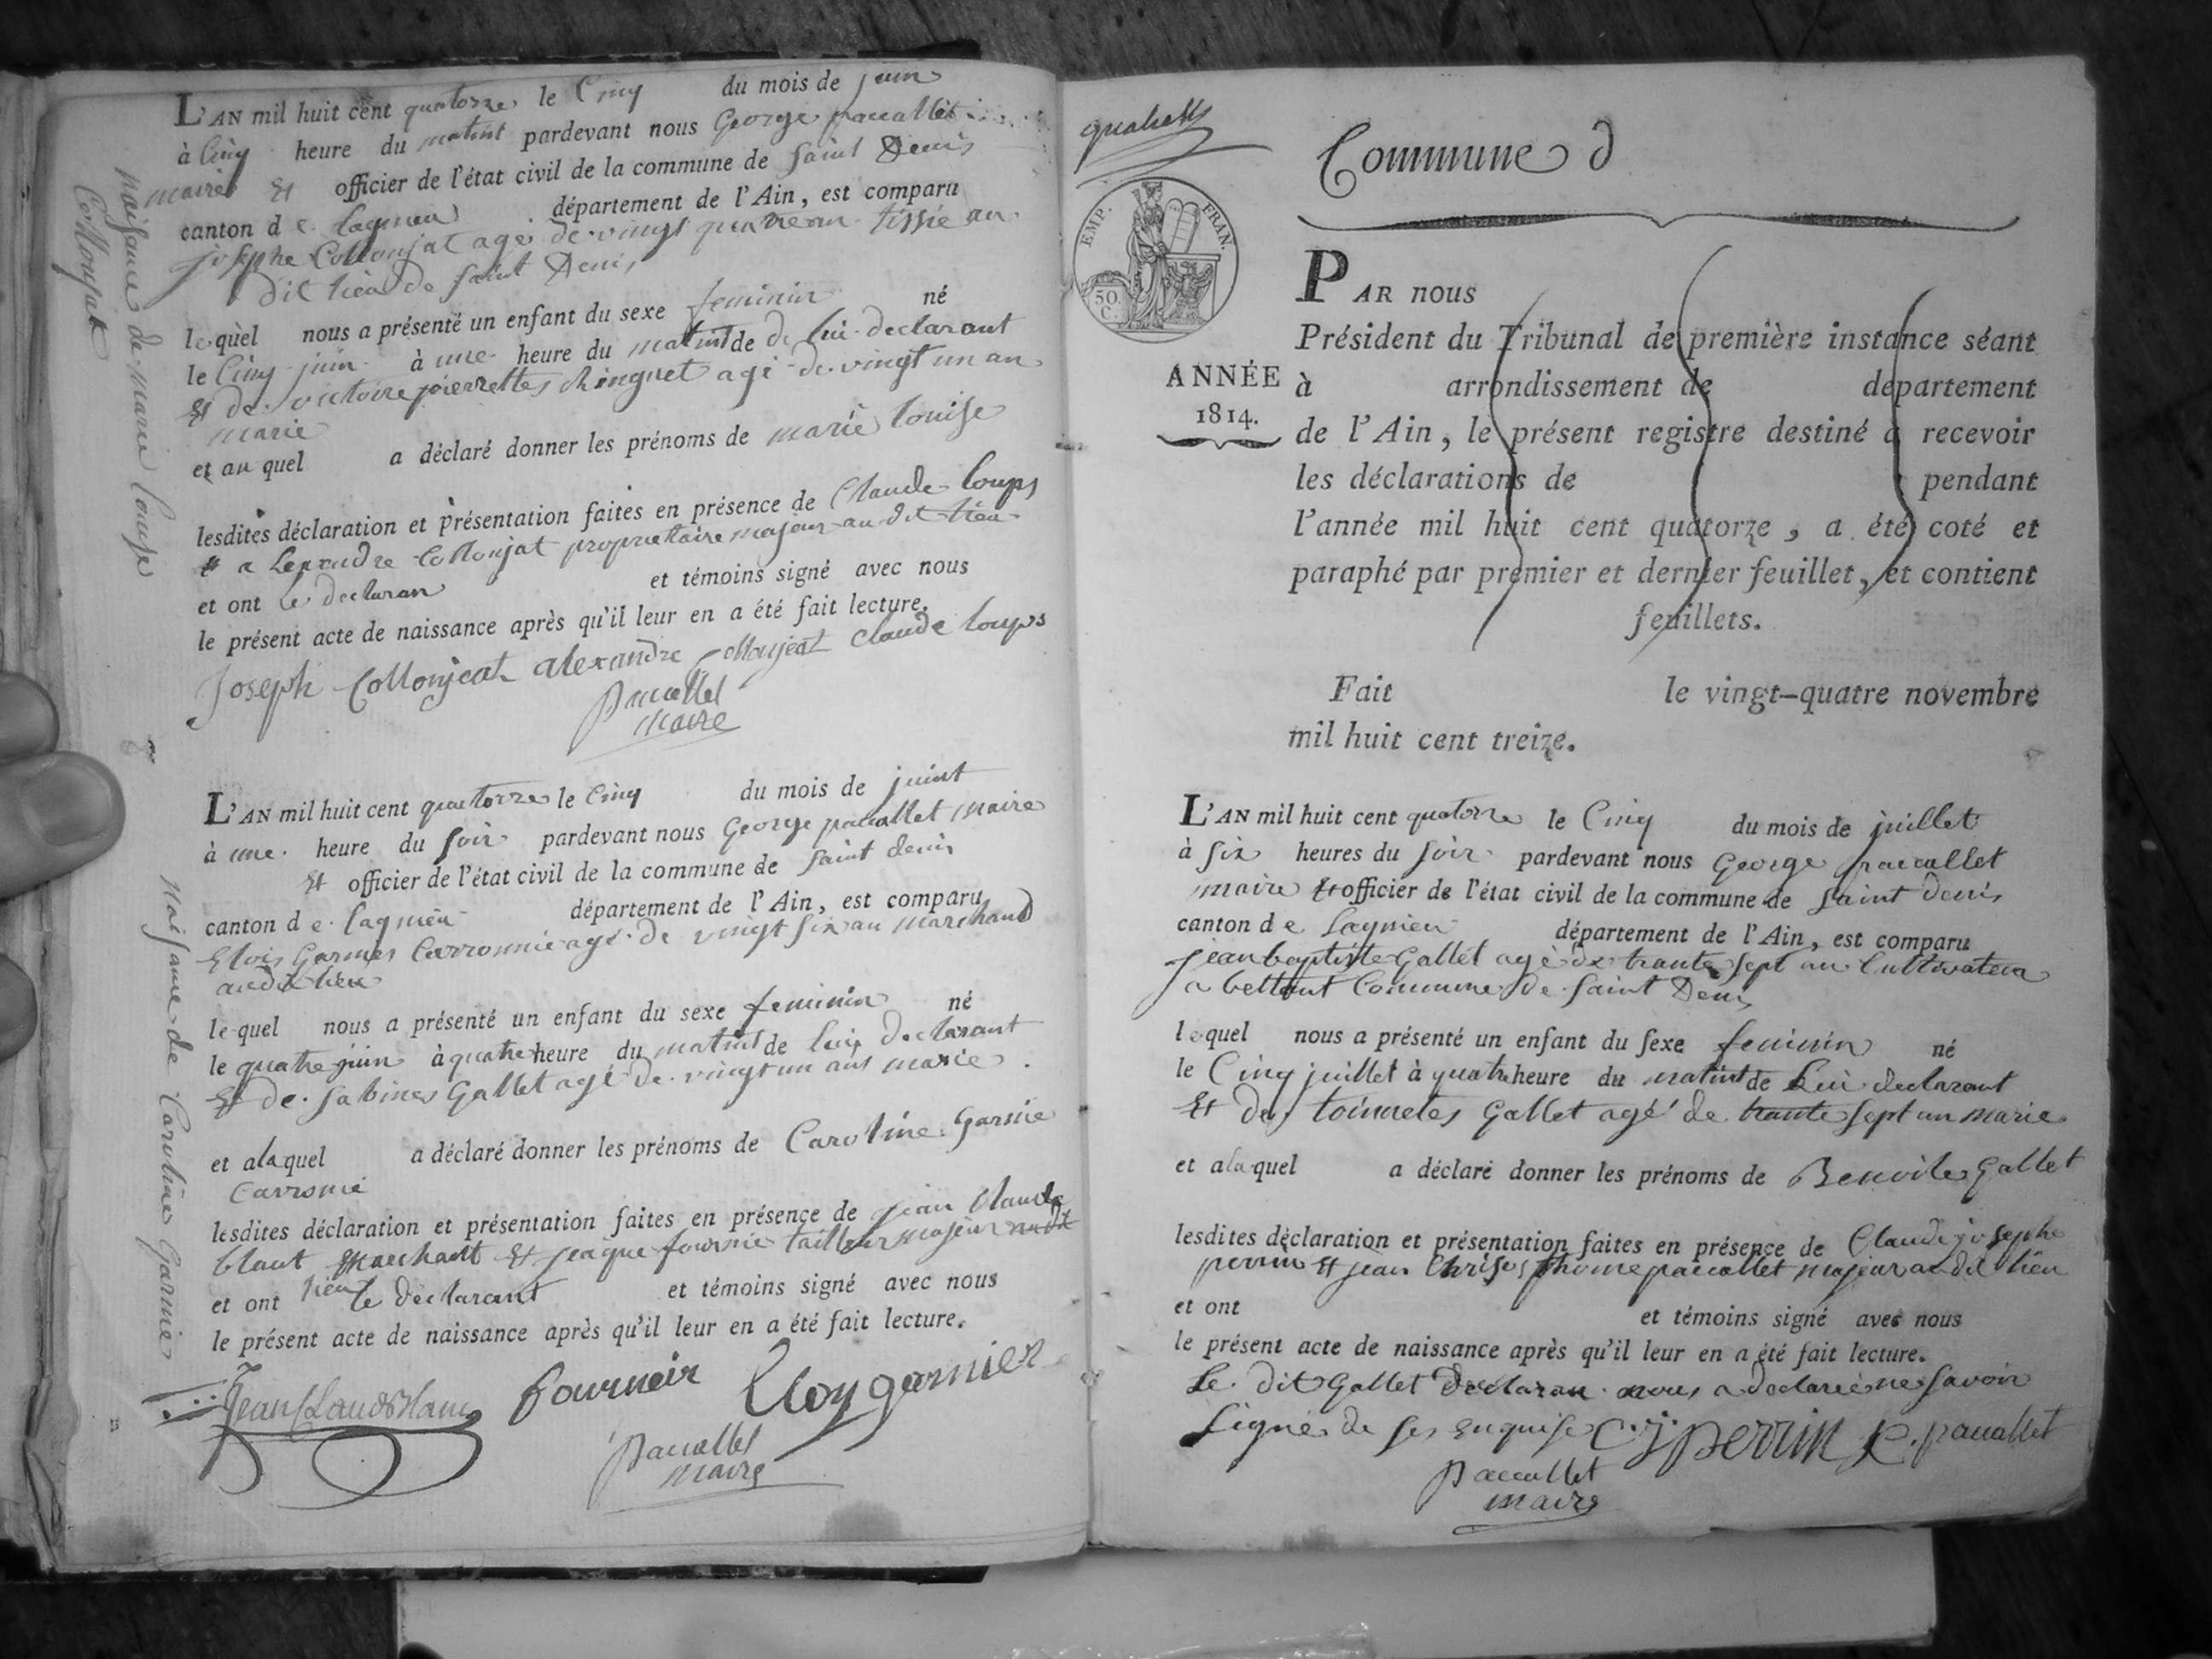 L'AN mil huit cent quatorze le Cinq du mois de juin
à Cinq heure du matint pardevant nous George paccallet
maire Et officier de l'état civil de la commune de Saint Denis
canton de Lagnieu département de l'Ain, est comparu
josephe Collonjat agé de vingt quatre an tissie au
dit lieu de Saint Denis
lequel nous a présenté un enfant du sexe feminin né
le Cinq juin à une heure du matint de Lui declarant
Et de victoire pierrettes Ringuet agé de vingt un an
marié
et au quel a déclaré donner les prénoms de marie louise
lesdites déclaration et présentation faites en présence de Claude loups
Et alexandre Collonjat proprietaire majeur au dit lieu
et ont Le declaran et témoins signé avec nous
le présent acte de naissance après qu'il leur en a été fait lecture.
Joseph Collonjeat alexandre Collonjeat claude loups
Paccallet
maire
naisance de marie louise
Collonjat
L'AN mil huit cent quatorze le Cinq du mois de juint
à une heure du soir pardevant nous George paccallet maire
Et officier de l'état civil de la commune de saint denis
canton de Lagnieu département de l'Ain, est comparu
Elois Garnier Carronnié agé de vingt six an marchand
audit lieu
lequel nous a présenté un enfant du sexe feminin né
le quatre juin à quatre heure du matint de Lui declarant
Et de Sabines Gallet agé de vingt un ans marié
et alaquel a déclaré donner les prénoms de Caroline Garnie
Carronié
lesdites déclaration et présentation faites en présence de jean Claude
blant marchant Et jeaque fournie tailleur majeur audit
et ont lieu le declarant et témoins signé avec nous
le présent acte de naissance après qu'il leur en a été fait lecture.
Jean Claude Blanc fournier Eloy garnier
Paccallet
maire
naisance de Caroline Garnie
Commune d
EMP. FRAN.
50.
C.
ANNÉE
1814.
PAR nous
Président du Tribunal de première instance séant
à arrondissement de département
de l'Ain, le présent registre destiné à recevoir
les déclarations de pendant
l'année mil huit cent quatorze, a été coté et
paraphé par premier et dernier feuillet, et contient
feuillets.
Fait le vingt-quatre novembre
mil huit cent treize.
L'AN mil huit cent quatorze le Cinq du mois de juillet
à six heures du soir pardevant nous George paccallet
maire Et officier de l'état civil de la commune de Saint denis
canton de Lagnieu département de l'Ain, est comparu
jean baptiste Gallet agé de trante sept an Cultivateur
a bettant Commune de Saint Denis
lequel nous a présenté un enfant du sexe feminin né
le Cinq juillet à quatre heure du matint de Lui declarant
Et des toinnetes Gallet agé de trante sept an marié
et alaquel a déclaré donner les prénoms de Benoite Gallet
lesdites déclaration et présentation faites en présence de Claude josephe
perrin Et jean Chrisosthome paccallet majeur au dit lieu
et ont et témoins signé avec nous
le présent acte de naissance après qu'il leur en a été fait lecture.
Le dit Gallet Declaran nous a declaré ne savoir
Signé de ses enquise C. j perrin p. paccallet
Paccallet
maire